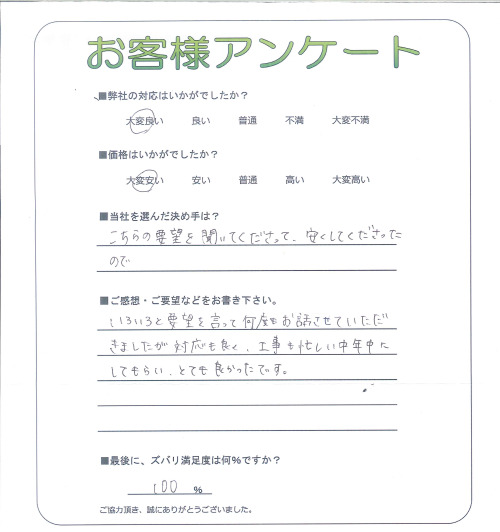 お客様アンケート
■弊社の対応はいかがでしたか？
大変良い 良い 普通 不満 大変不満
■価格はいかがでしたか？
大変安い 安い 普通 高い 大変高い
■当社を選んだ決め手は？
こちらの要望を聞いてくださって、安くしてくださった
ので
■ご感想・ご要望などをお書き下さい。
いろいろと要望を言って何度もお話させていただ
きましたが対応も良く、工事も忙しい中年中に
してもらい、とても良かったです。
■最後に、ズバリ満足度は何％ですか？
100 %
ご協力頂き、誠にありがとうございました。